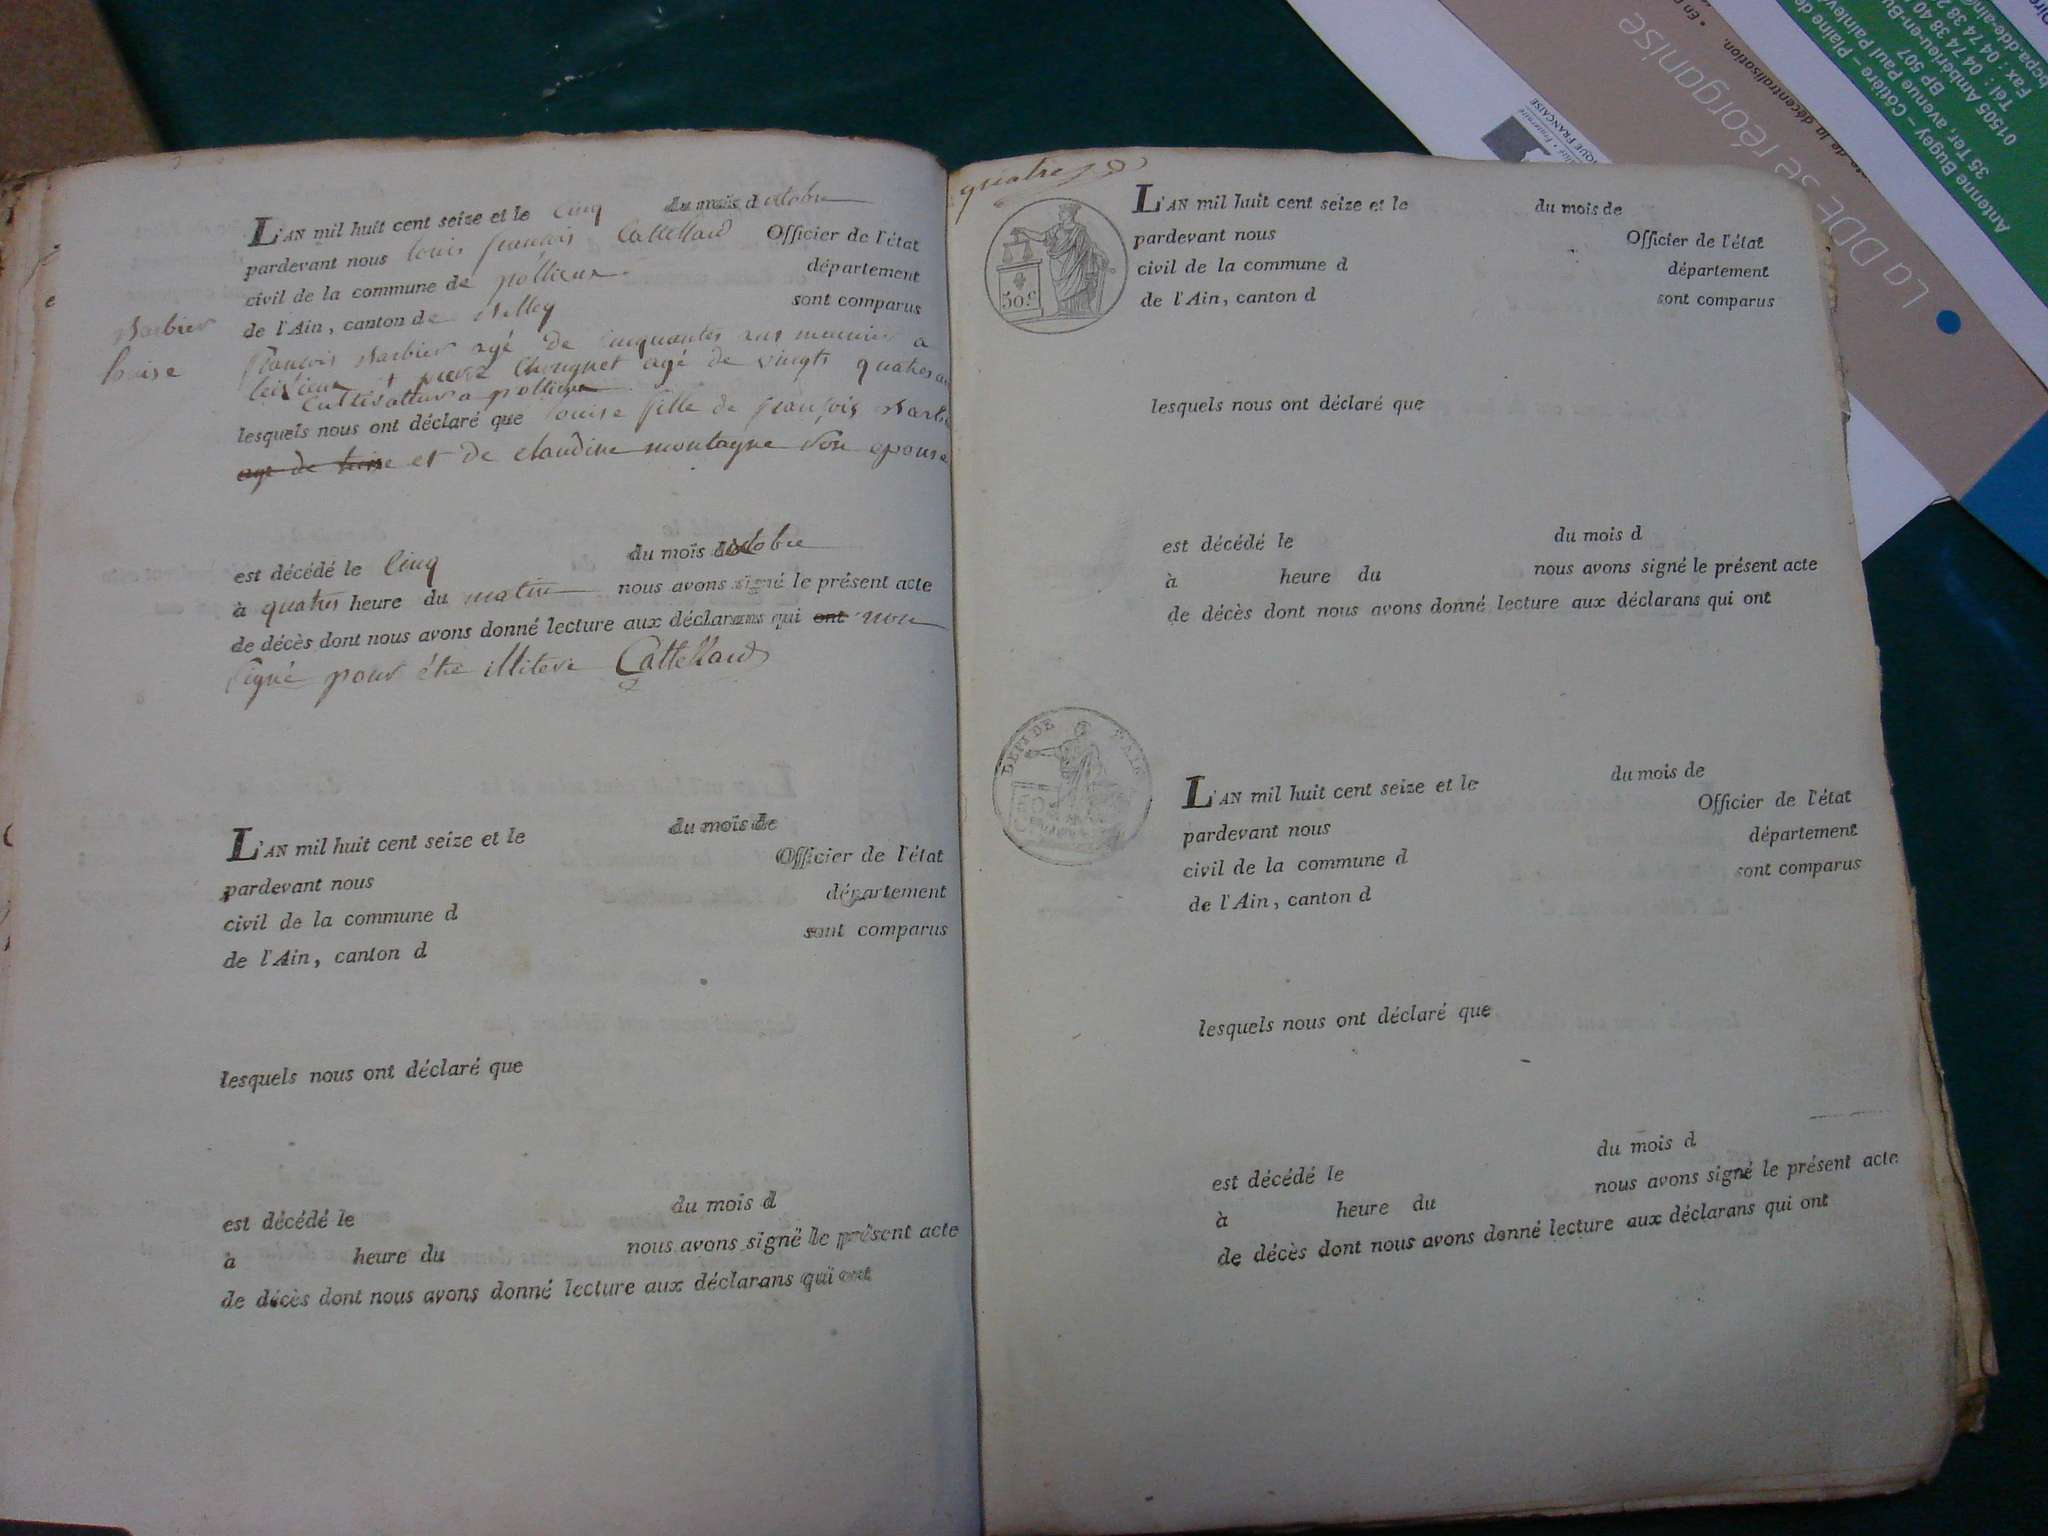 L'AN mil huit cent seize et le cinq du mois d octobre
pardevant nous louis françois Cattelland Officier de l'état
civil de la commune de pollieux département
de l'Ain, canton de Belley sont comparus
Barbier
louise
françois Barbier agé de cinquantes ans meunier a
et pierre Chougnet agé de vingts quatres ans
Cultivatteur a pollieux
lesquels nous ont déclaré que louise fille de françois Barbier
age de treise et de claudine montagne son epouse
est décédé le cinq du mois d octobre
à quatres heure du matin nous avons signé le présent acte
de décès dont nous avons donné lecture aux déclarans qui ont non
signé pour étre illiteré Cattelland
L'AN mil huit cent seize et le du mois de
pardevant nous Officier de l'état
civil de la commune d département
de l'Ain, canton d sont comparus
lesquels nous ont déclaré que
est décédé le du mois d
à heure du nous avons signé le présent acte
de décès dont nous avons donné lecture aux déclarans qui ont
quatre
50 c
L'AN mil huit cent seize et le du mois de
pardevant nous Officier de l'état
civil de la commune d département
de l'Ain, canton d sont comparus
lesquels nous ont déclaré que
est décédé le du mois d
à heure du nous avons signé le présent acte
de décès dont nous avons donné lecture aux déclarans qui ont
L'AN mil huit cent seize et le du mois de
pardevant nous Officier de l'état
civil de la commune d département
de l'Ain, canton d sont comparus
lesquels nous ont déclaré que
est décédé le du mois d
à heure du nous avons signé le présent acte
de décès dont nous avons donné lecture aux déclarans qui ont
La DDE se réorganise
de la décentralisation.
QUE FRANÇAISE
Antenne Bugey – Côtière – Plaine de
35 Ter, avenue Paul Painlevé
BP 507
01505 Ambérieu-en-Bu
Tél : 04 74 38
Fax : 04 74 38